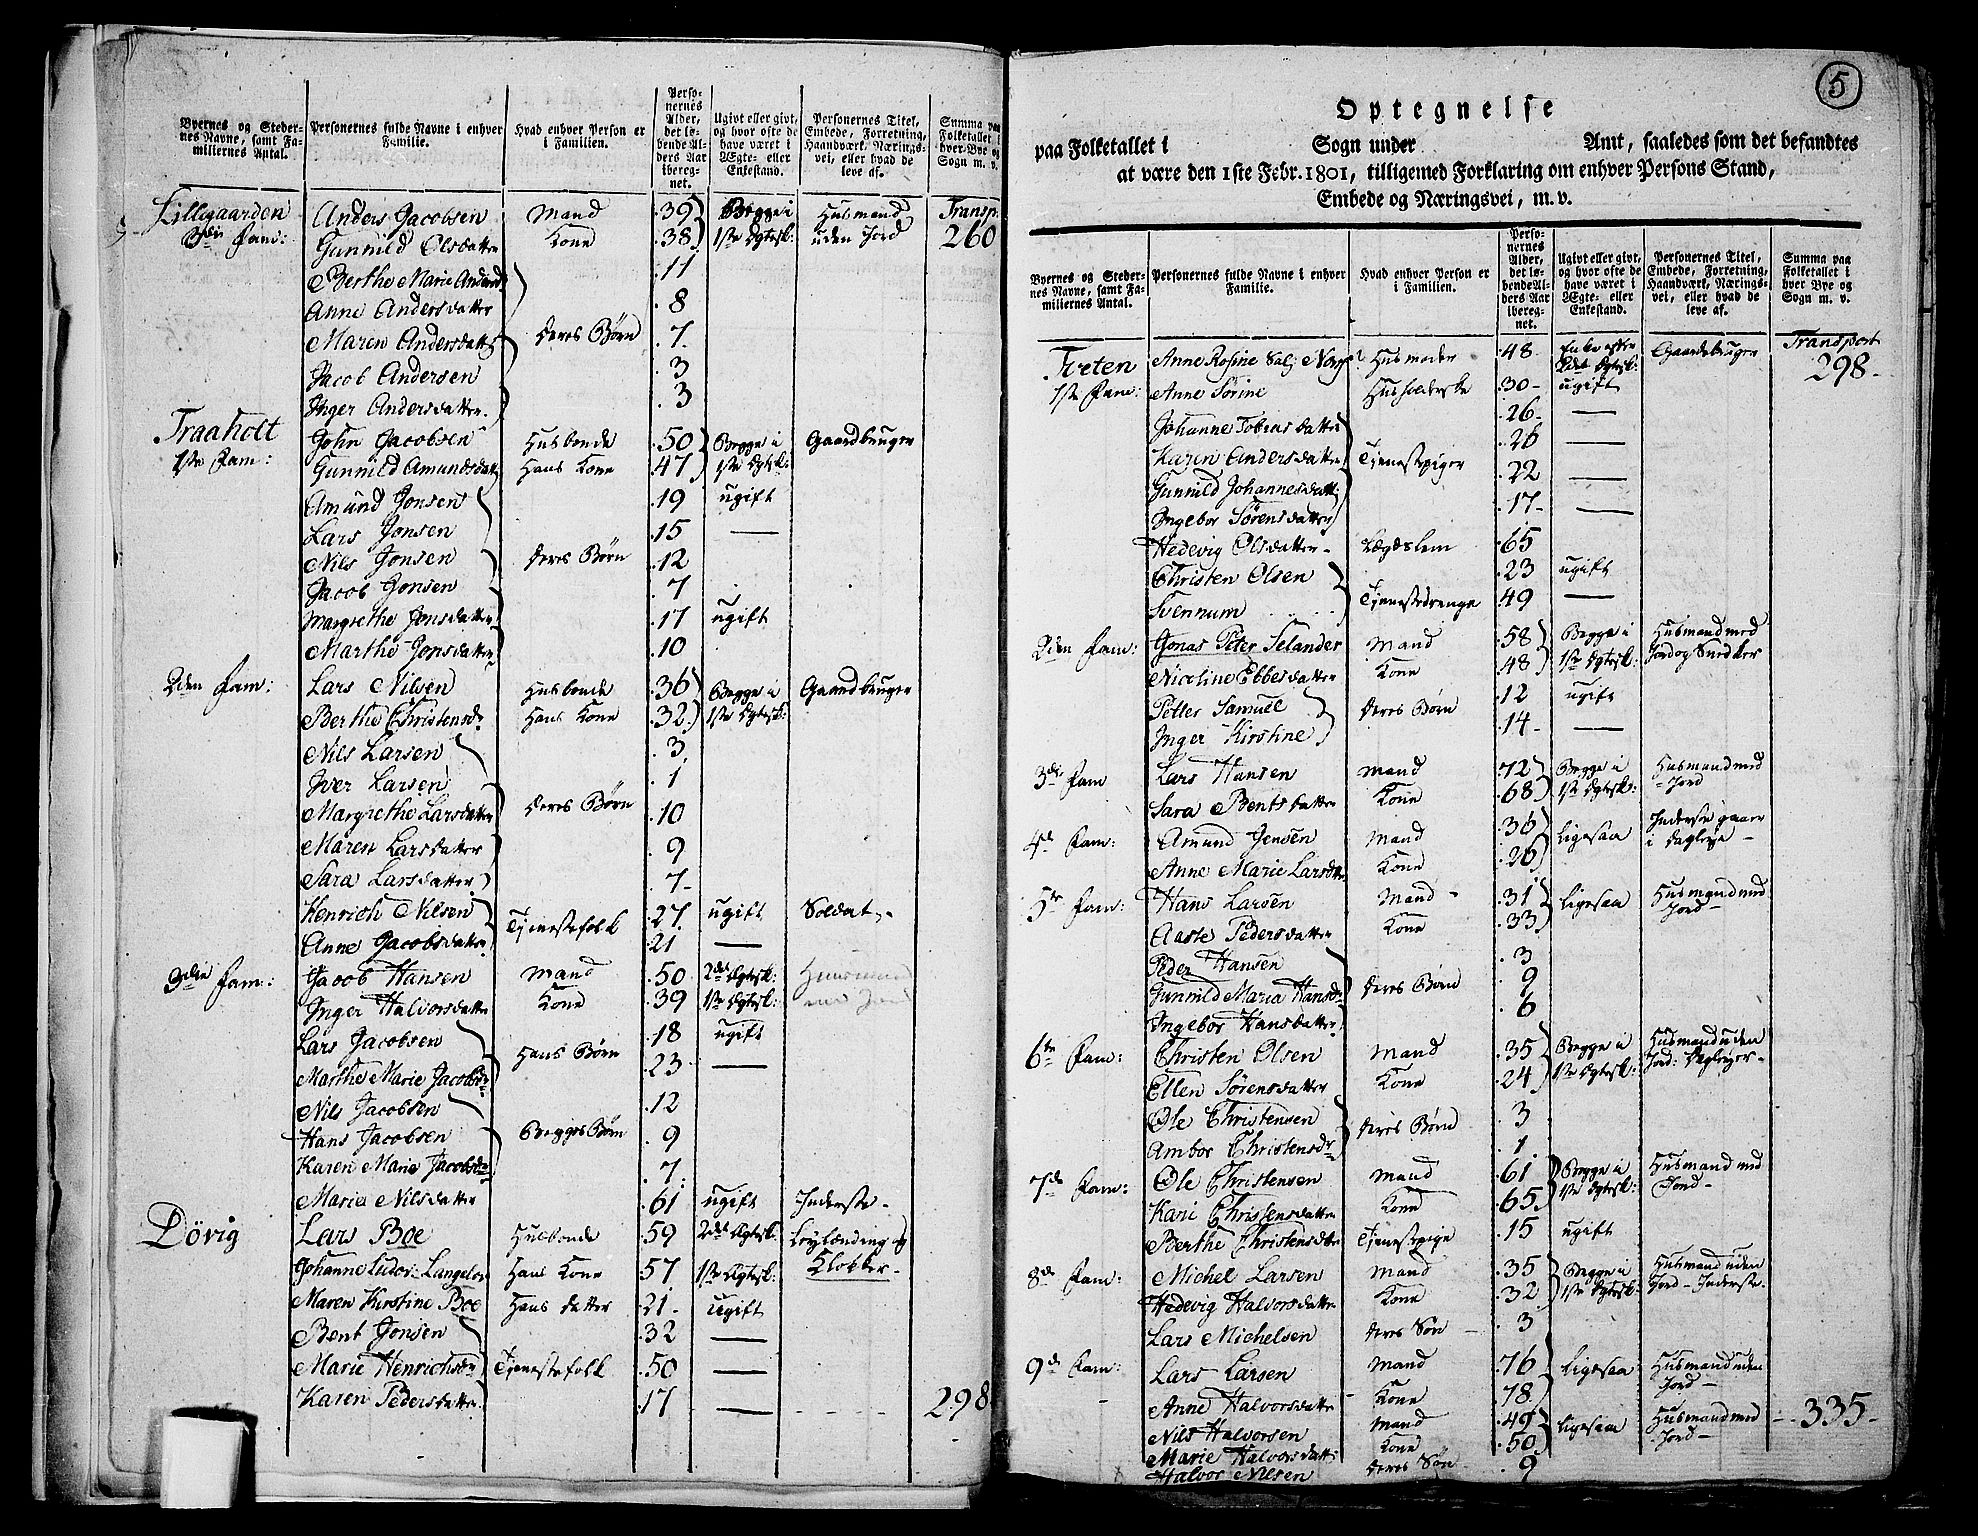 Byernes og Steder-
nes Navne, samt Fa-
miliernes Antal.
Personernes fulde Navne i enhver
Familie.
Hvad enhver Person er
i Familien.
Perso-
nernes
Alder,
det lø-
bende Al-
ders Aar
ibereg-
net.
Ugivt eller givt,
og hvor ofte de
have været i
Ægte- eller
Enkestand.
Personernes Titel,
Embede, Forretning,
Haandværk, Nærings-
vei, eller hvad de
leve af.
Summa paa
Folketallet i
hver Bye og
Sogn m. v.
Lillegaarden Anders Jacobsen Mand 39 Begge i Husmand Transp.
3die Fam: Gunnild Olsdatter Kone 38 1ste Ægtesk: uden Jord 260
Berthe Marie Andersd 11
Anne Andersdatter 8
Maren Andersdatter deres Børn 7
Jacob Andersen 3
Inger Andersdatter 3
Traaholt John Jacobsen Husbonde 50 Begge i Gaardbruger
1ste Fam: Gunnild Amundsdatt Hans Kone 47 1ste Ægtesk:
Amund Jonsen 19 ugift
Lars Jonsen 15 —
Nils Jonsen deres Børn 12
Jacob Jonsen 7
Margrethe Jonsdatter 17 ugift
Marthe Jonsdatter 10
2den Fam: Lars Nilsen Husbonde 36 Begge i Gaardbruger
Berthe Christensdr Hans Kone 32 1ste Ægtesk:
Nils Larsen 3
Iver Larsen 1
Margrethe Larsdatter deres Børn 10
Maren Larsdatter 9
Sara Larsdatter 7
Henrich Nilsen Tjenestefolk 27 ugift Soldat
Anne Jacobsdatter 21 —
3die Fam: Jacob Hansen Mand 50 2det Ægtesk: Huusmand
Inger Halvorsdatter Kone 39 1ste Ægtesk: med Jord
Lars Jacobsen Hans Børn 18 ugift
Marthe Marie Jacobsdr 23 —
Nils Jacobsen 12
Hans Jacobsen Begges Børn 9
Karen Marie Jacobsdr 7
Maria Nilsdatter 61 ugift Inderste
Dövig Lars Boe Husbonde 59 2det Ægtesk: Leylænding og
Johanne Ludov: Langelov Hans Kone 57 1ste Ægtesk: Klokker
Maren Kirstine Boe Hans datter 21 ugift
Bent Jonsen 32 —
Marie Henrichsdr Tjenestefolk 50 —
Karen Pedersdatter 17 — 298
5
Optegnelse
paa Folketallet i Sogn under Amt, saaledes som det befandtes
at være den 1ste Febr. 1801, tilligemed Forklaring om enhver Persons Stand,
Embede og Næringsvei, m. v.
Byernes og Steder-
nes Navne, samt Fa-
miliernes Antal.
Personernes fulde Navne i enhver
Familie.
Hvad enhver Person er
i Familien.
Perso-
nernes
Alder,
det lø-
bende Al-
ders Aar
ibereg-
net.
Ugivt eller givt,
og hvor ofte de
have været i
Ægte- eller
Enkestand.
Personernes Titel,
Embede, Forretning,
Haandværk, Nærings-
vei, eller hvad de
leve af.
Summa paa
Folketallet i
hver Bye og
Sogn m. v.
Treten Anne Rosine Sal: Husmoder 48 Enke efter Gaardbruger Transport
2det Ægtesk: 298
1ste Fam: Anne Sörine Husholderske 30 ugift
Johanne Tobiasdatter 26 —
Karen Andersdatter Tjenestepiger 26 —
Gunnild Johannesdatt: 22 —
Ingebor Sörensdatter 17 —
Hedevig Olsdatter Lægdslem 65
Christen Olsen 23 ugift
Svennum Tjenestedrenge 49 —
2den Fam: Jonas Peter Selander Mand 58 Begge i Husmand med
Nicoline Ebbesdatter Kone 48 1ste Ægtesk: Jord og Snedker
Petter Samuel deres Børn 12 ugift
Inger Kirstine 14 —
3die Fam Lars Hansen Mand 72 Begge i Husmand med
Sara Bentsdatter Kone 68 1ste Ægtesk: Jord
4de Fam: Amund Jensen Mand 36 ligesaa Inderste gaaer
Anne Marie Larsdtr Kone 26 i Dagleye
5te Fam: Hans Larsen Mand 31 ligesaa Husmand med
Aaste Pedersdatter Kone 33 Jord
Peder Hansen 3
Gunnild Maria Hansdr deres Børn 9
Ingebor Hansdatter 6
6te Fam: Christen Olsen Mand 35 Begge i Husmand uden
Ellen Sörensdatter Kone 24 1ste Ægtesk: Jord: Dagleyer
Ole Christensen deres Børn 3
Ambor Christensdr 1
7de Fam: Ole Christensen Mand 61 Begge i Husmand med
Kari Christensdatter Kone 65 1ste Ægtesk: Jord
Berthe Christensdtr Tjenestepige 15 ugift
8de Fam: Michel Larsen Mand 35 Begge i Husmand uden
Hedevig Halvorsdatter Kone 32 1ste Ægtesk: Jord - Inderste
Lars Michelsen deres Søn 3
9de Fam: Lars Larsen Mand 76 ligesaa Husmand uden
Anne Halvorsdatter Kone 78 Jord
Nils Halvorsen Mand 49 ligesaa Husmand med 335
Marie Halvorsdatt: Kone 50 Jord
Halvor Nilsen deres Søn 9